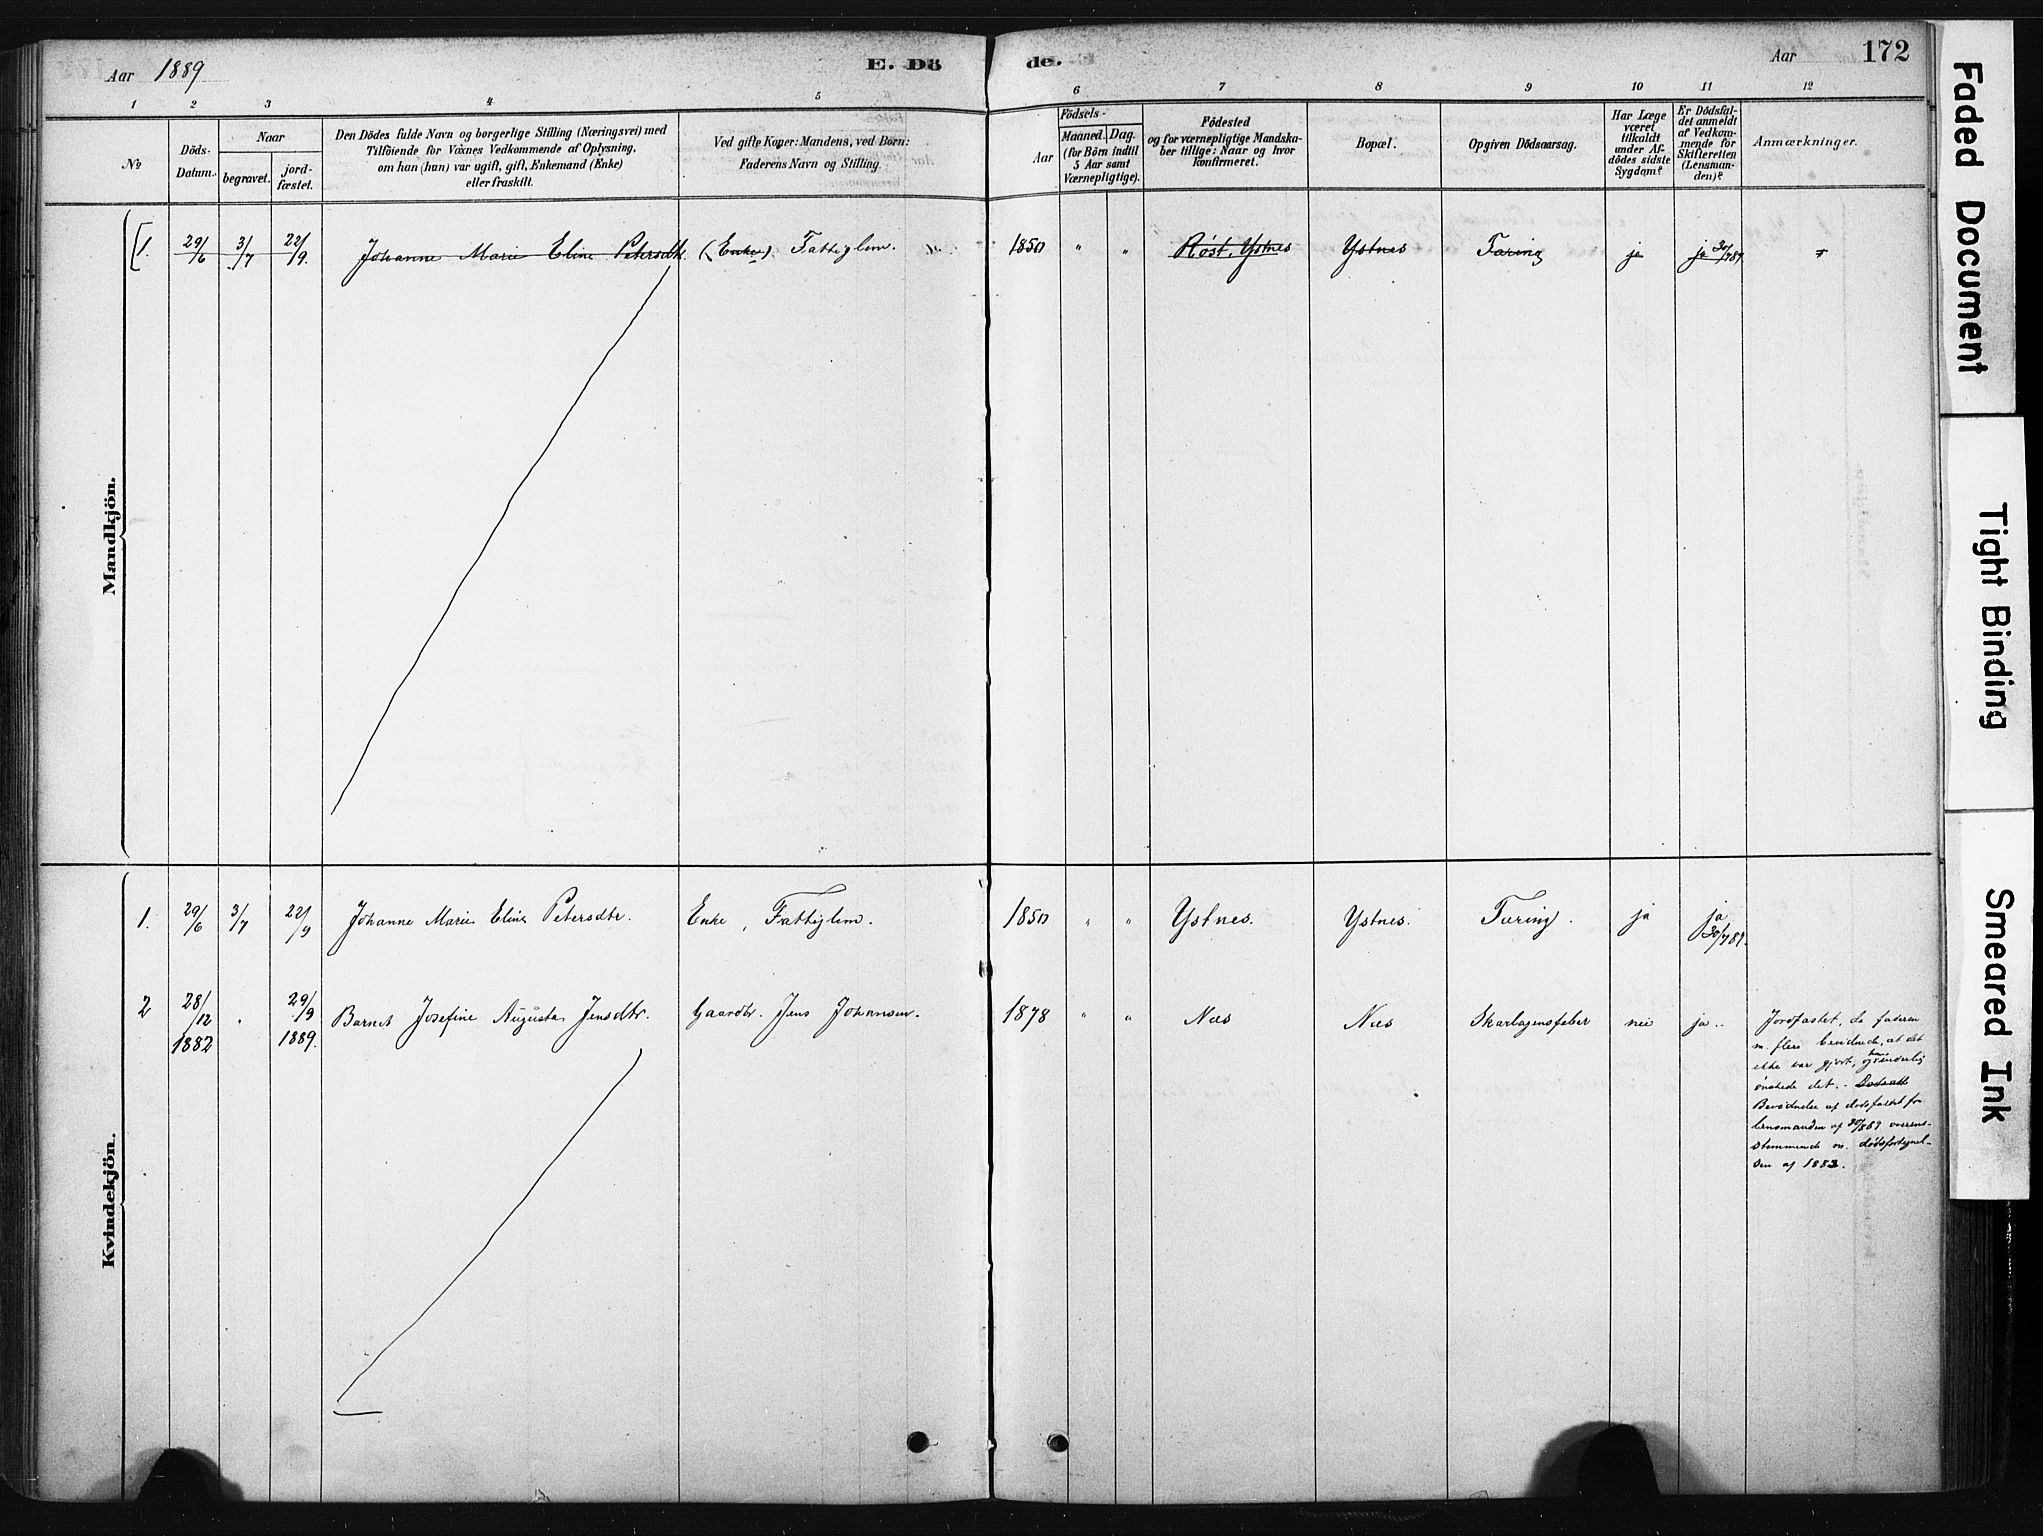 Aar 1889
E. Dö
de.
Aar
172
1 2 3 4 5 6 7 8 9 10 11 12
№
Döds-
Datum.
Naar
begravet.
jord-
fæstet.
Den Dödes fulde Navn og borgerlige Stilling (Næringsvei) med
Tilföiende for Voxnes Vedkommende af Oplysning,
om han (hun) var ugift, gift, Enkemand (Enke)
eller fraskilt.
Ved gifte Koner: Mandens, ved Börn:
Faderens Navn og Stilling.
Aar
Födsels-
Maaned. Dag.
(for Börn indtil
5 Aar samt
Værnepligtige).
Födested
og for værnepligtige Mandska-
ber tillige: Naar og hvor
konfirmeret.
Bopæl.
Opgiven Dödsaarsag.
Har Læge
været
tilkaldt
under Af-
dödes sidste
Sygdom?
Er Dödsfal-
det anmeldt
af Vedkom-
mende for
Skifteretten
(Lensman-
den)?
Anmærkninger.
Mandkjön.
1. 29/6 3/7 22/9. Johanne Marie Eline Petersdtr. (Enke). Fattiglem. 1850 " " Røst, Ystnes Ystnes Tæring ja ja 30/789.
Kvindekjön.
1. 29/6 3/7 22/9 Johanne Marie Eline Petersdtr. Enke, Fattiglem. 1850 " " Ystnes. Ystnes. Tæring. ja ja 30/789.
2 28/12 1882 29/9 1889. Barnet Josefine Augusta Jensdtr. Gaardbr. Jens Johansen. 1878 " " Næs Næs Skarlagensfeber nei ja..
Jordfæstet, da faderen
m. flere bevidnede, at det
ikke var gjort, og inderlig
ønskede det. -
Bevidnelse af dødsfaldet fra
lensmanden af 30/889 overens-
stemmende m. dødsfortegnel-
sen af 1883.
Faded Document
Tight Binding
Smeared Ink